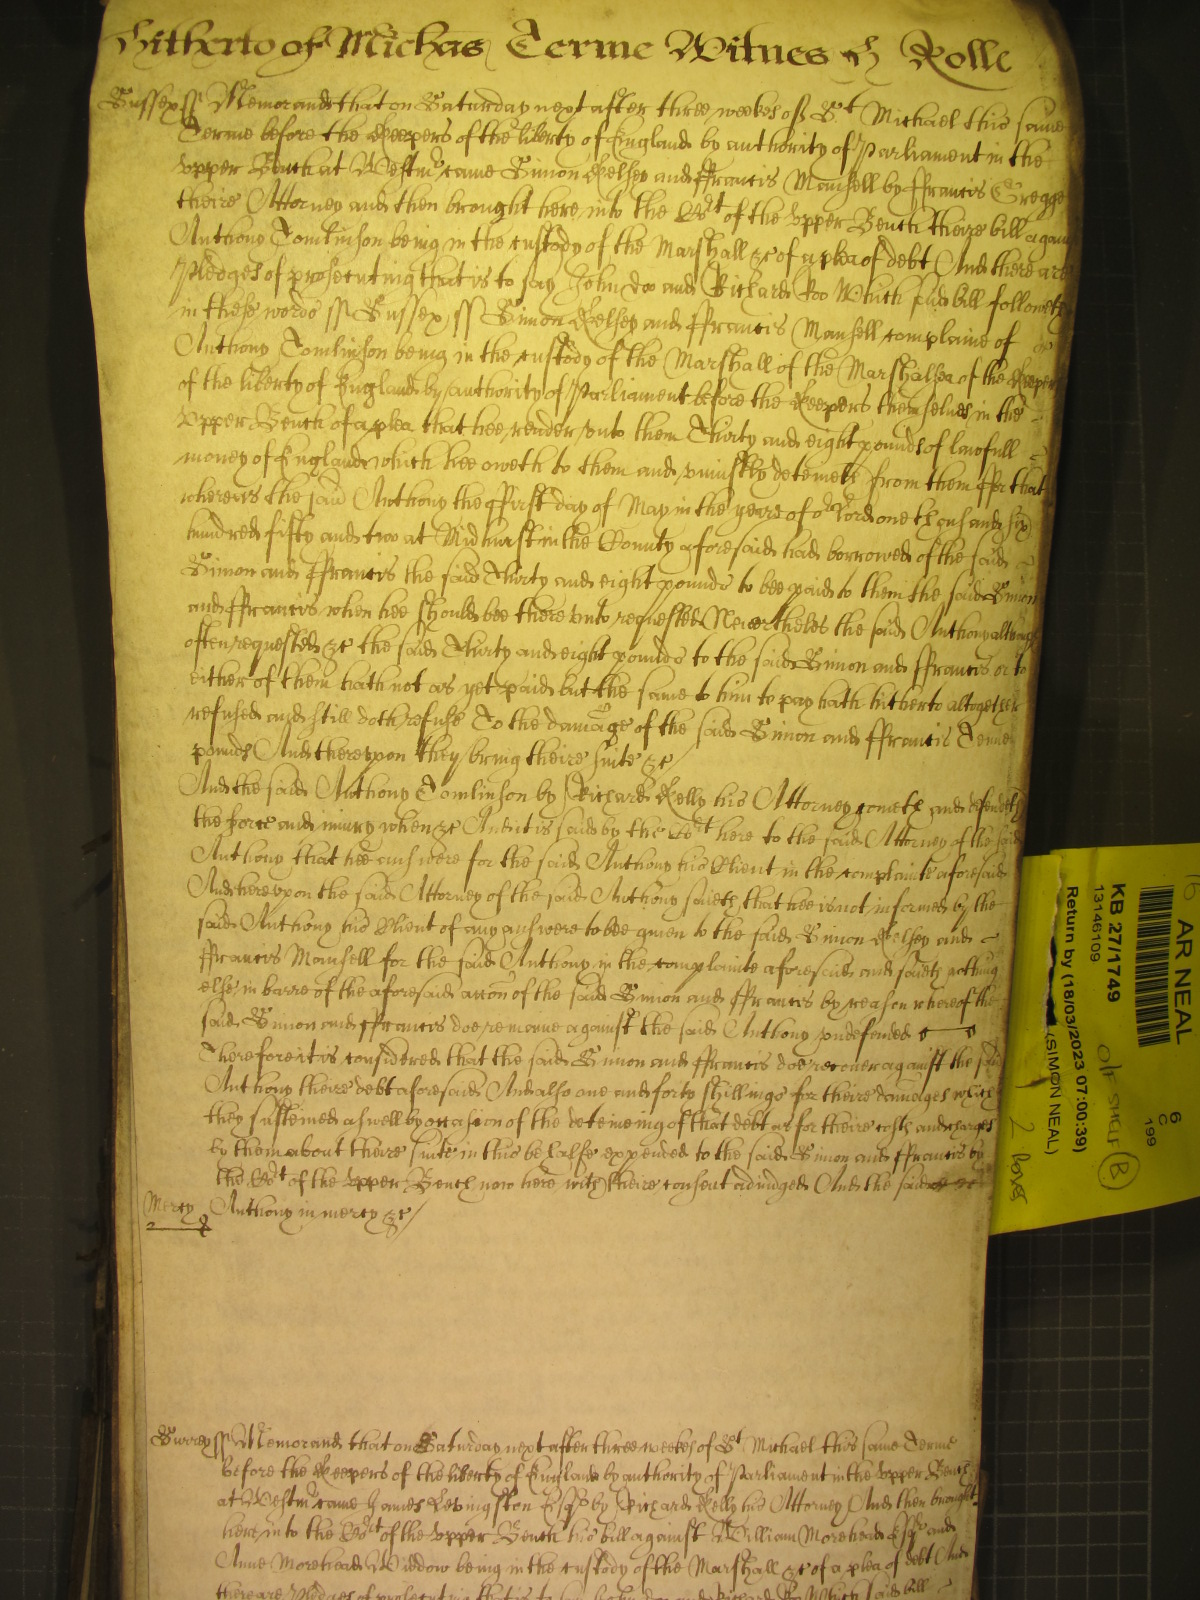 Hitherto of Michas Terme Witnes Rolle
Sussex ss Memorand that on Saturday next after three weekes of St Michael this same
Terme before the Keepers of the liberty of England by authority of Parliament in the
upper Bench at Westmr came Simon Kelsey and ffrancis Mansell by ffrancis Gregge
theire Attorney and then brought here into the Cort of the upper Bench theire bill against
Anthony Tomlinson being in the custody of the Marshall &c of a plea of debt And there are
pledges of prosecuting that is to say John Doo and Richard Roo Which said bill followeth
in these words ss Sussex ss Simon Kelsey and ffrancis Mansell complaine of
Anthony Tomlinson being in the custody of the Marshall of the Marshalsea of the Keepers
of the liberty of England by authority of Parliament before the Keepers themselves in the
upper Bench of a plea that hee render unto them Thirty and eight pounds of lawfull
money of England which hee oweth to them and uniustly deteineth from them ffor that
whereas the said Anthony the ffirst day of May in the yeare of or Lord one thousand six
hundred fifty and two at Midhurst in the County aforesaid had borrowed of the said
Simon and ffrancis the said Thirty and eight pounds to bee paid to them the said Simon
and ffrancis when hee should bee thereunto requested Neverthelesse the said Anthony although
often requested &c the said Thirty and eight pounds to the said Simon and ffrancis or to
either of them hath not as yet paid but the same to him to pay hath hitherto altogether
refused and still doth refuse To the damage of the said Simon and ffrancis Tenne
pounds And thereupon they bring theire suite &c
And the said Anthony Tomlinson by Richard Kelly his Attorney cometh and defendeth
the force and iniury when &c And it is said by the Cort here to the said Attorney of the said
Anthony that hee answere for the said Anthony his Client in the complainte aforesaid
And hereupon the said Attorney of the said Anthony saieth that hee is not informed by the
said Anthony his Client of any answere to bee given to the said Simon Kelsey and
ffrancis Mansell for the said Anthony in the complainte aforesaid and saieth nothing
else in barre of the aforesaid accon of the said Simon and ffrancis by reason whereof the
said Simon and ffrancis doe remaine against the said Anthony undefended
Therefore it is considered that the said Simon and ffrancis doe recover against the said
Anthony theire debt aforesaid And also one and forty shillings for theire damages which
they susteined aswell by occasion of the deteineing of that debt as for theire costs and charges
by them about theire suite in this behalfe expended to the said Simon and ffrancis by
the Cort of the upper Bench now here with theire consent adiudged And the said
Mercy Anthony in mercy &c
Surrey ss Memorand that on Saturday next after three weekes of St Michael this same Terme
before the Keepers of the liberty of England by authority of Parliament in the upper Bench
at Westmr came James Levingston Esqr by Richard Kelly his Attorney And then brought
here into the Cort of the upper Bench his bill against William Morehead Esqr and
Anne Morehead Widdow being in the custody of the Marshall &c of a plea of debt And
there are pledges of prosecuting that is to say John Doo and Richard Roo Which said bill
AR NEAL
KB 27/1749
13146109
Return by (18/03/2023 07:00:39)
(SIMON NEAL)
6
C
199
B
2 boxes